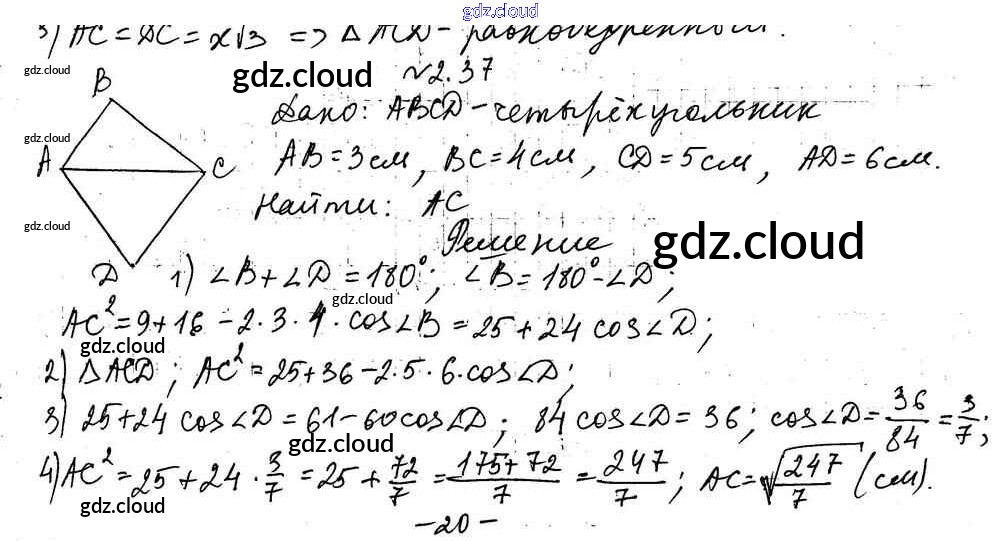 gdz.cloud
3) AC = DC = x√3 => Δ ACD - равнобедренный.
№2.37
gdz.cloud
B
Дано: ABCD - четырёхугольник
gdz.cloud
A
C
AB = 3см, BC = 4см, CD = 5см, AD = 6см.
Найти: AC
gdz.cloud
Решение
gdz.cloud
D
1) ∠B + ∠D = 180°; ∠B = 180° - ∠D;
gdz.cloud
AC² = 9 + 16 - 2·3·4·cos∠B = 25 + 24 cos∠D;
gdz.cloud
2) ΔACD; AC² = 25 + 36 - 2·5·6·cos∠D;
3) 25 + 24 cos∠D = 61 - 60 cos∠D; 84 cos∠D = 36; cos∠D = 36/84 = 3/7;
gdz.cloud
4) AC² = 25 + 24 · 3/7 = 25 + 72/7 = (175 + 72)/7 = 247/7; AC = √(247/7) (см).
gdz.cloud
gdz.cloud
- 20 -